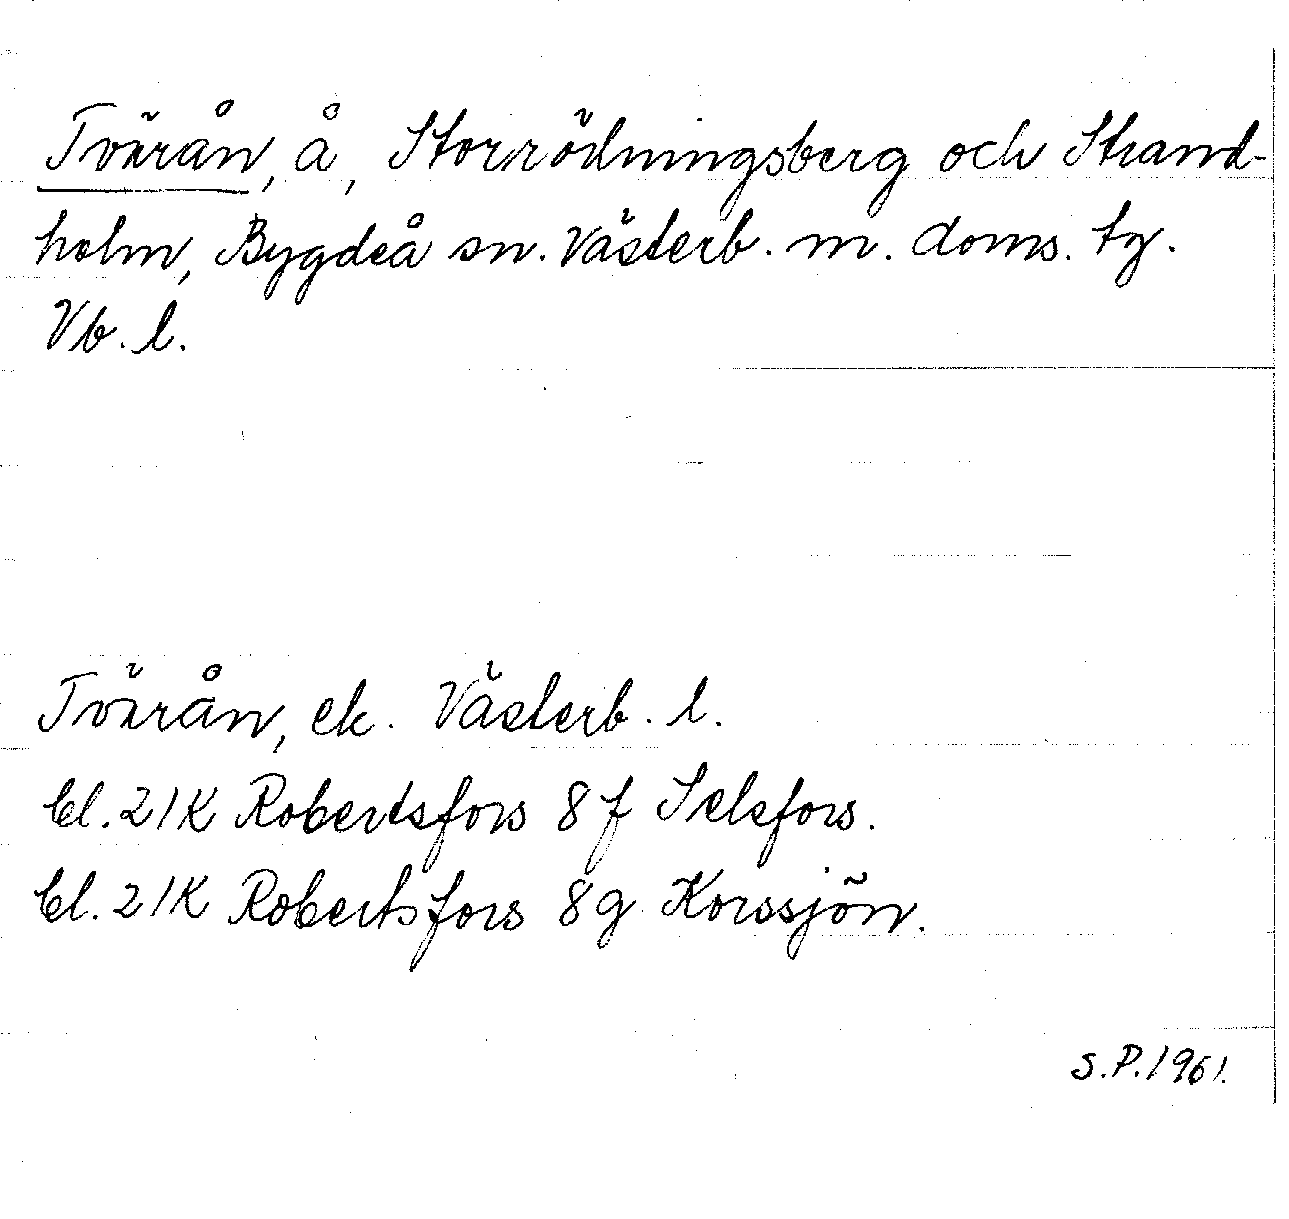 Tvärån, å, Storrödningsberg och Strand-
holm, Bygdeå sn. Västerb. m. doms. tg.
Vb. l.
Tvärån, ek. Västerb. l.
bl. 21K Robertsfors 8f Selsfors.
bl. 21K Robertsfors 8g Korssjön.
S.P.1961.